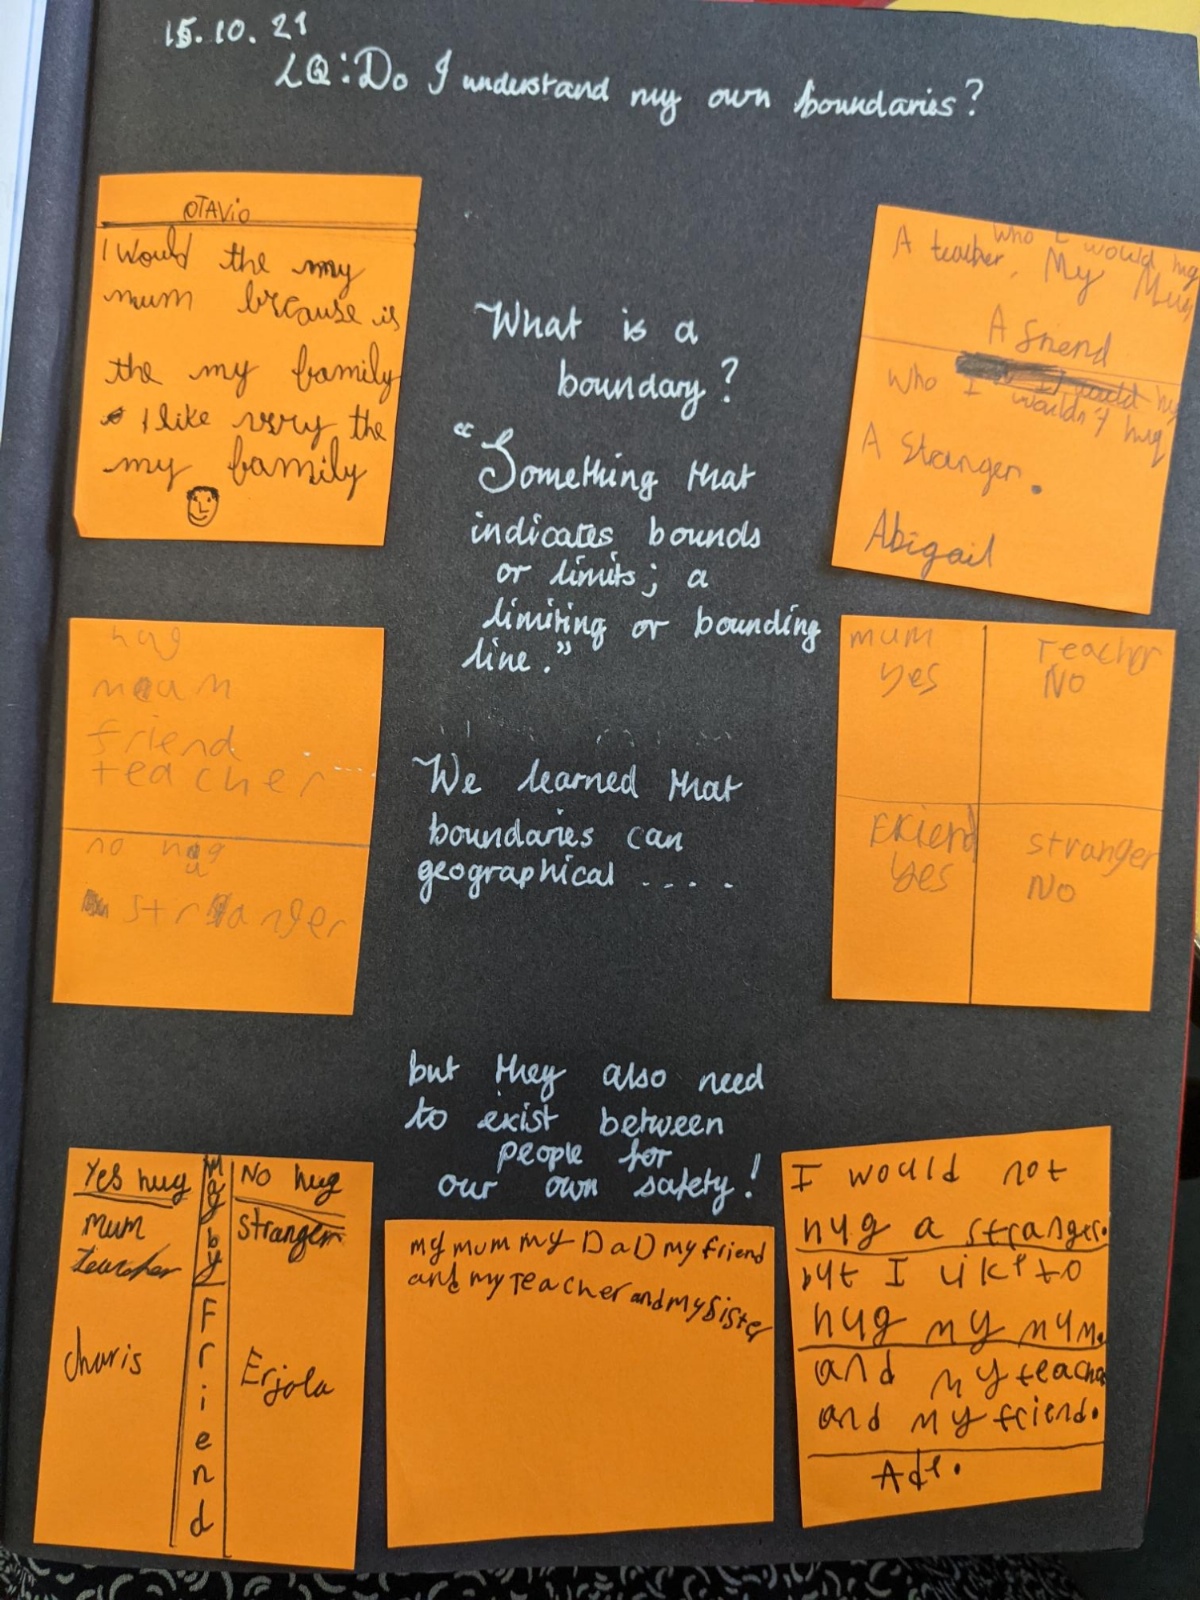 15.10.21
LQ: Do I understand my own boundaries?
OTAVio
I Would the my
mum because is
the my family
I like very the
my family
What is a
boundary?
"Something that
indicates bounds
or limits; a
limiting or bounding
line."
Who I would hug
A teacher, My Mum
A friend
Who I wouldn't hug
A Stranger.
Abigail
hug
mum
friend
teacher
no hug
stranger
We learned that
boundaries can
geographical ....
mum
yes
Teacher
No
Friend
yes
stranger
No
but they also need
to exist between
people for
our own safety!
Yes hug
mum
teacher
charis
mayby
Friend
No hug
stranger
Erjola
my mum my DaD my friend
and my Teacher and my Sister
I would not
hug a stranger.
but I like to
hug my mum.
and my teacher
and my friend.
Ade.